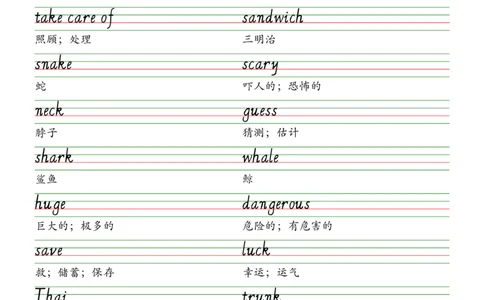 take care of sandwich
照顾；处理 三明治
snake scary
蛇 吓人的；恐怖的
neck guess
脖子 猜测；估计
shark whale
鲨鱼 鲸
huge dangerous
巨大的；极多的 危险的；有危害的
save luck
救；储蓄；保存 幸运；运气
Thai trunk